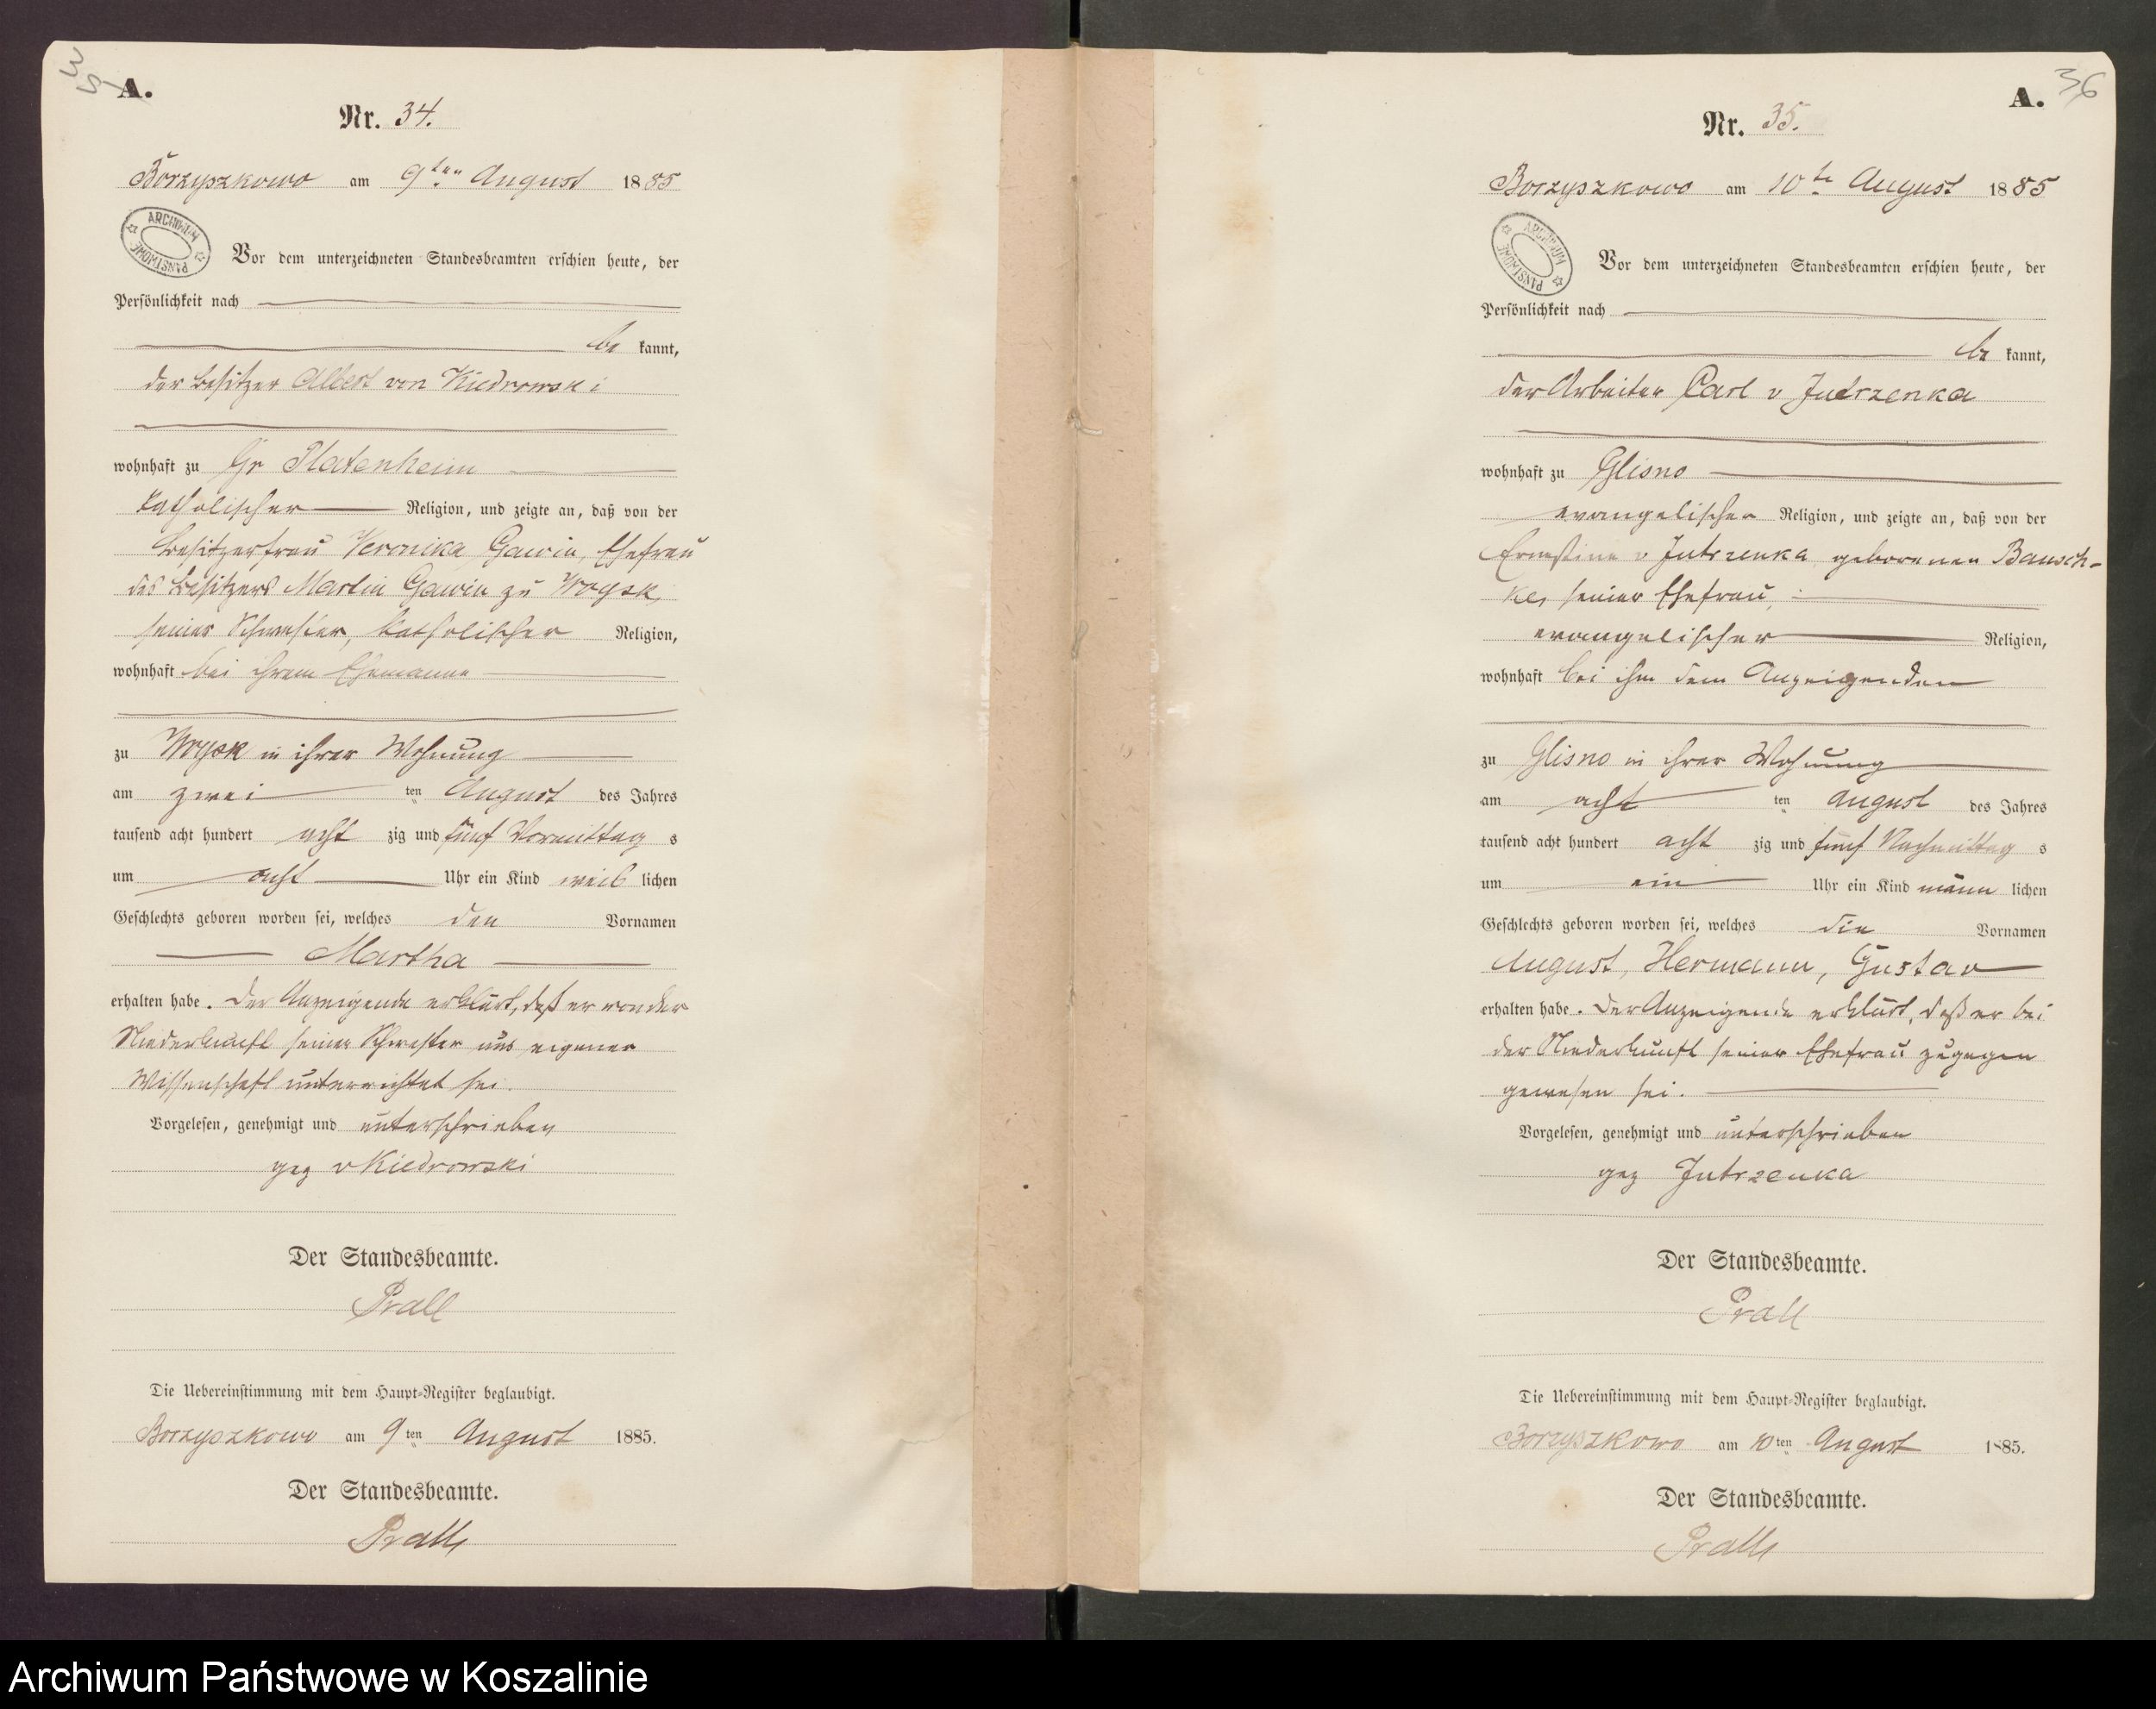 35
A.
Nr. 34.
Borzyszkowo am 9ten August 1885
ARCHIWUM PAŃSTWOWE
Vor dem unterzeichneten Standesbeamten erschien heute, der
Persönlichkeit nach
be kannt,
der Besitzer Albert von Kiedrowski
wohnhaft zu Gr Platenheim
katholischer Religion, und zeigte an, daß von der
Besitzerfrau Veronika Gawin, Ehefrau
des Besitzers Martin Gawin zu
seiner Schwester, katholischer Religion,
wohnhaft bei ihrem Ehemanne
zu in ihrer Wohnung
am zwei ten August des Jahres
tausend acht hundert acht zig und fünf Vormittag s
um acht Uhr ein Kind weib lichen
Geschlechts geboren worden sei, welches den Vornamen
Martha
erhalten habe. Der Anzeigende erklärt, daß er von der
Niederkunft seiner Schwester aus eigener
Wissenschaft unterrichtet sei.
Vorgelesen, genehmigt und unterschrieben
gez v Kiedrowski
Der Standesbeamte.
Prall
Die Uebereinstimmung mit dem Haupt-Register beglaubigt.
Borzyszkowo am 9ten August 1885.
Der Standesbeamte.
Prall
36
A.
Nr. 35.
Borzyszkowo am 10te August 1885
ARCHIWUM PAŃSTWOWE
Vor dem unterzeichneten Standesbeamten erschien heute, der
Persönlichkeit nach
be kannt,
der Arbeiter Carl v Jutrzenka
wohnhaft zu Glisno
evangelischer Religion, und zeigte an, daß von der
Ernestine v Jutrzenka geborenen Bausch-
ke, seiner Ehefrau,
evangelischer Religion,
wohnhaft bei ihm dem Anzeigenden
zu Glisno in ihrer Wohnung
am acht ten August des Jahres
tausend acht hundert acht zig und fünf Nachmittag s
um ein Uhr ein Kind männ lichen
Geschlechts geboren worden sei, welches die Vornamen
August, Hermann, Gustav
erhalten habe. Der Anzeigende erklärt, daß er bei
der Niederkunft seiner Ehefrau zugegen
gewesen sei.
Vorgelesen, genehmigt und unterschrieben
gez Jutrzenka
Der Standesbeamte.
Prall
Die Uebereinstimmung mit dem Haupt-Register beglaubigt.
Borzyszkowo am 10ten August 1885.
Der Standesbeamte.
Prall
Archiwum Państwowe w Koszalinie